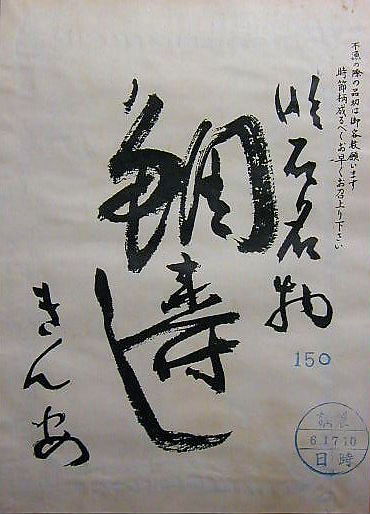 不漁の際の品切は御容赦願います
時節柄成るべくお早くお召上り下さい
明石名物
鯛壽し
きん安
150
調製
6.1710
日時